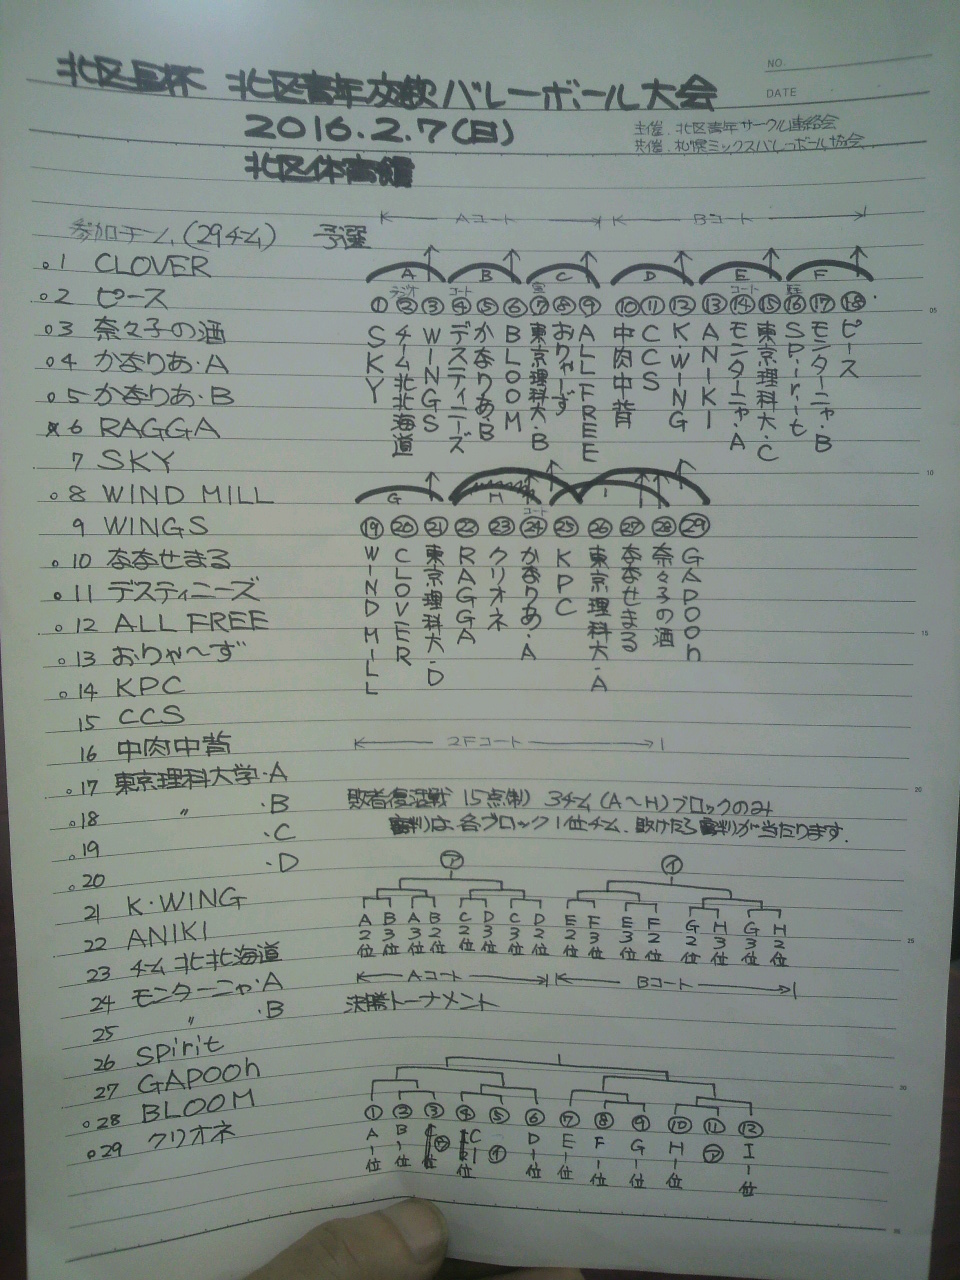 NO.
DATE
北区長杯 北区青年交歓バレーボール大会
2016.2.7(日)
北区体育館
主催. 北区青年サークル連絡会
共催. 札幌ミックスバレーボール協会
参加チーム(29チーム) 予選
Aコート Bコート
1 CLOVER
2 ピース
3 奈々子の酒
4 かなりあ・A
5 かなりあ・B
6 RAGGA
7 SKY
8 WIND MILL
9 WINGS
10 なませまる
11 デスティニーズ
12 ALL FREE
13 おりゃ〜ず
14 KPC
15 CCS
16 中肉中背
17 東京理科大学・A
18 〃 ・B
19 ・C
20 ・D
21 K・WING
22 ANIKI
23 チーム北北海道
24 モンターニャ・A
25 〃 ・B
26 SPirit
27 GAPOOh
28 BLOOM
29 クリオネ
A B C D E F
① SKY
② チーム北北海道
③ WINGS
④ デスティニーズ
⑤ かなりあ・B
⑥ BLOOM
⑦ 東京理科大・B
⑧ おりゃーず
⑨ ALL FREE
⑩ 中肉中背
⑪ CCS
⑫ K・WING
⑬ ANIKI
⑭ モンターニャ・A
⑮ 東京理科大・C
⑯ SPirit
⑰ モンターニャ・B
⑱ ピース
G H I
⑲ WIND MILL
⑳ CLOVER
㉑ 東京理科大・D
㉒ RAGGA
㉓ クリオネ
㉔ かなりあ・A
㉕ KPC
㉖ 東京理科大・A
㉘ 奈々子の酒
㉙ GAPOOh
2Fコート
敗者復活戦 15点(制) 3チーム(A〜H)ブロックのみ
審判は、各ブロック1位チーム. 敗けたら審判が当たります.
㋐ ㋑
A2位 B3位 A3位 B2位 C2位 D3位 C3位 D2位 E2位 F3位 E3位 F2位 G2位 H3位 G3位 H2位
Aコート Bコート
決勝トーナメント
① ② ③ ④ ⑤ ⑥ ⑦ ⑧ ⑨ ⑩ ⑪ ⑫
A1位 B1位 ㋒ C1位 ㋑ D1位 E1位 F1位 G1位 H1位 ㋐ I1位